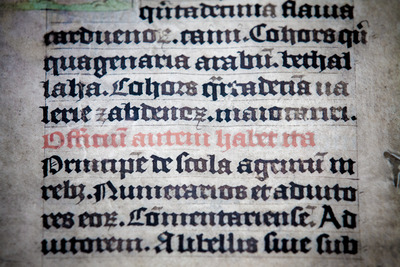 q̄ítadecima flauia
carduenoꝝ. cani. Cohors q̄ı̄
quagenaria arabū. bethal
laha. Cohors q̄rtadecīa ua
lerie zabdenoꝝ. maiocariri.
Officiū autem habet ita
Principē de scola agentiū in
rebꝫ. Numerarios et adiuto
res eoꝝ. Cōmentariensē. Ad
iutorem. A libellis siue sub